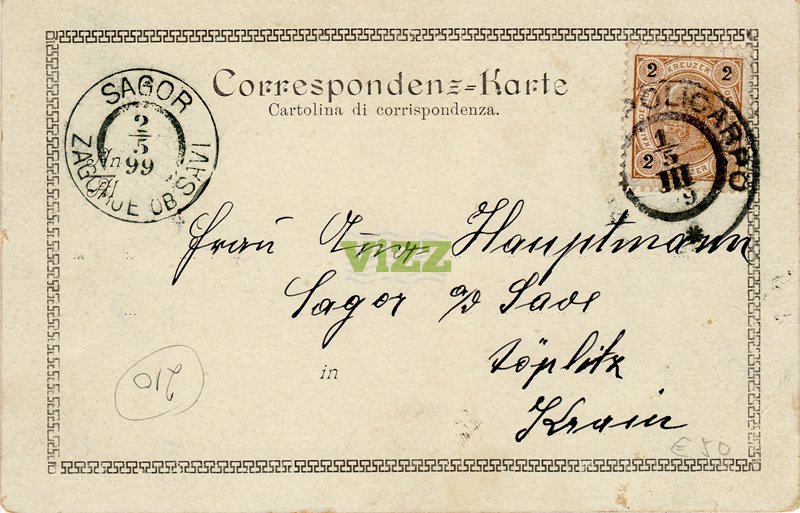 Correspondenz-Karte
Cartolina di corrispondenza.
SAGOR
2
5
99
ZAGORJE OB SAVI
2 KREUZER 2
2
POLICARPO
1
5
III
9
Frau Hauptmann
VIZZ
Sagor a/d Save
in
Töplitz
Krain
210
€50